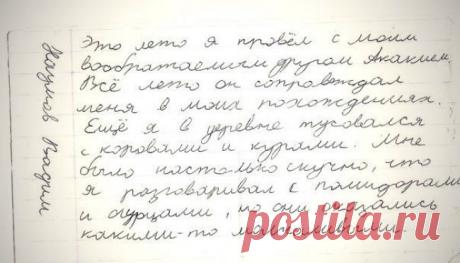 Наумов Вадим
Это лето я провёл с моим
воображаемым другом Акакием.
Всё лето он сопровождал
меня в моих похождениях.
Ещё я в деревне тусовался
с коровами и курами. Мне
было настолько скучно, что
я разговаривал с помидорами
и огурцами, но они оказались
какими-то молчаливыми.
postila.ru